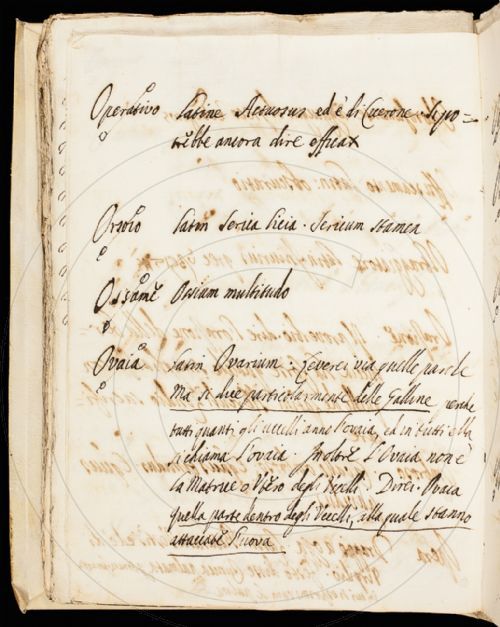 Operativo Latine Actuosus ed è di Cicerone. Si po=
trebbe ancora dire efficax
Orsoio Latin Serica licia. Sericum stamen
Ossame Ossium multitudo
Ovaia Latin Ovarium. Leverei via quelle parole
Ma si dice particolarmente delle Galline, perche
tutti quanti gli uccelli anno l'ovaia, ed in tutti ella
si chiama l'ovaia. Inoltre l'Ovaia non è
la Matrice o Utero degli Uccelli. Direi. Ovaia
quella parte dentro degli Uccelli, alla quale stanno
attaccate l'uova.